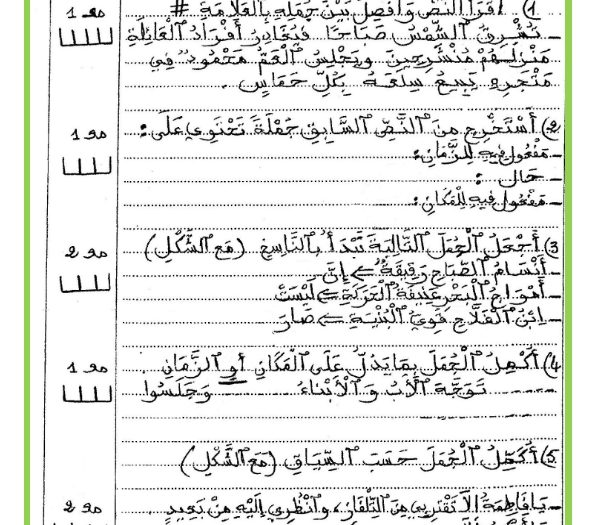 1) اقْرَأْ النَّصَّ وَافْصِلْ بَيْنَ جُمَلِهِ بِالْعَلَامَةِ #
مع 1
- تُشْرِقُ الشَّمْسُ صَبَاحًا فَيُغَادِرُ أَفْرَادُ الْعَائِلَةِ
مَنْزِلَهُمْ مُنْشَرِحِينَ وَيَجْلِسُ الْعَمُّ مَحْمُودٌ فِي
مَتْجَرِهِ يَبِيعُ سِلَعَهُ بِكُلِّ حَمَاسٍ .
2) أَسْتَخْرِجُ مِنَ النَّصِّ السَّابِقِ جُمْلَةً تَحْتَوِي عَلَى :
مع 1
- مَفْعُول فِيهِ لِلزَّمَانِ:
- حَال :
- مَفْعُول فِيهِ لِلْمَكَانِ:
3) أَجْعَلُ الْجُمَلَ التَّالِيَةَ تَبْدَأُ بِالنَّاسِخِ (مَعَ الشَّكْلِ)
مع 2
- أَنْسَامُ الصَّبَاحِ رَقِيقَةٌ => إِنَّ
- أَمْوَاجُ الْبَحْرِ عَنِيفَةُ الْحَرَكَةِ => لَيْسَتْ
- اِبْنُ الْفَلَّاحِ قَوِيُّ الْبُنْيَةِ => صَارَ
4) أُكْمِلُ الْجُمَلَ بِمَا يَدُلُّ عَلَى الْمَكَانِ أَوِ الزَّمَانِ .
مع 1
------ تَوَجَّهَ الْأَبُ وَ الْأَبْنَاءُ ------ وَجَلَسُوا
------
5) أُكْمِلُ الْجُمَلَ حَسَبَ السِّيَاقِ (مَعَ الشَّكْلِ)
- يَا فَاطِمَةُ لَا تَقْتَرِبِي مِنَ التِّلْفَازِ، وَانْظُرِي إِلَيْهِ مِنْ بَعِيدٍ .
مع 2